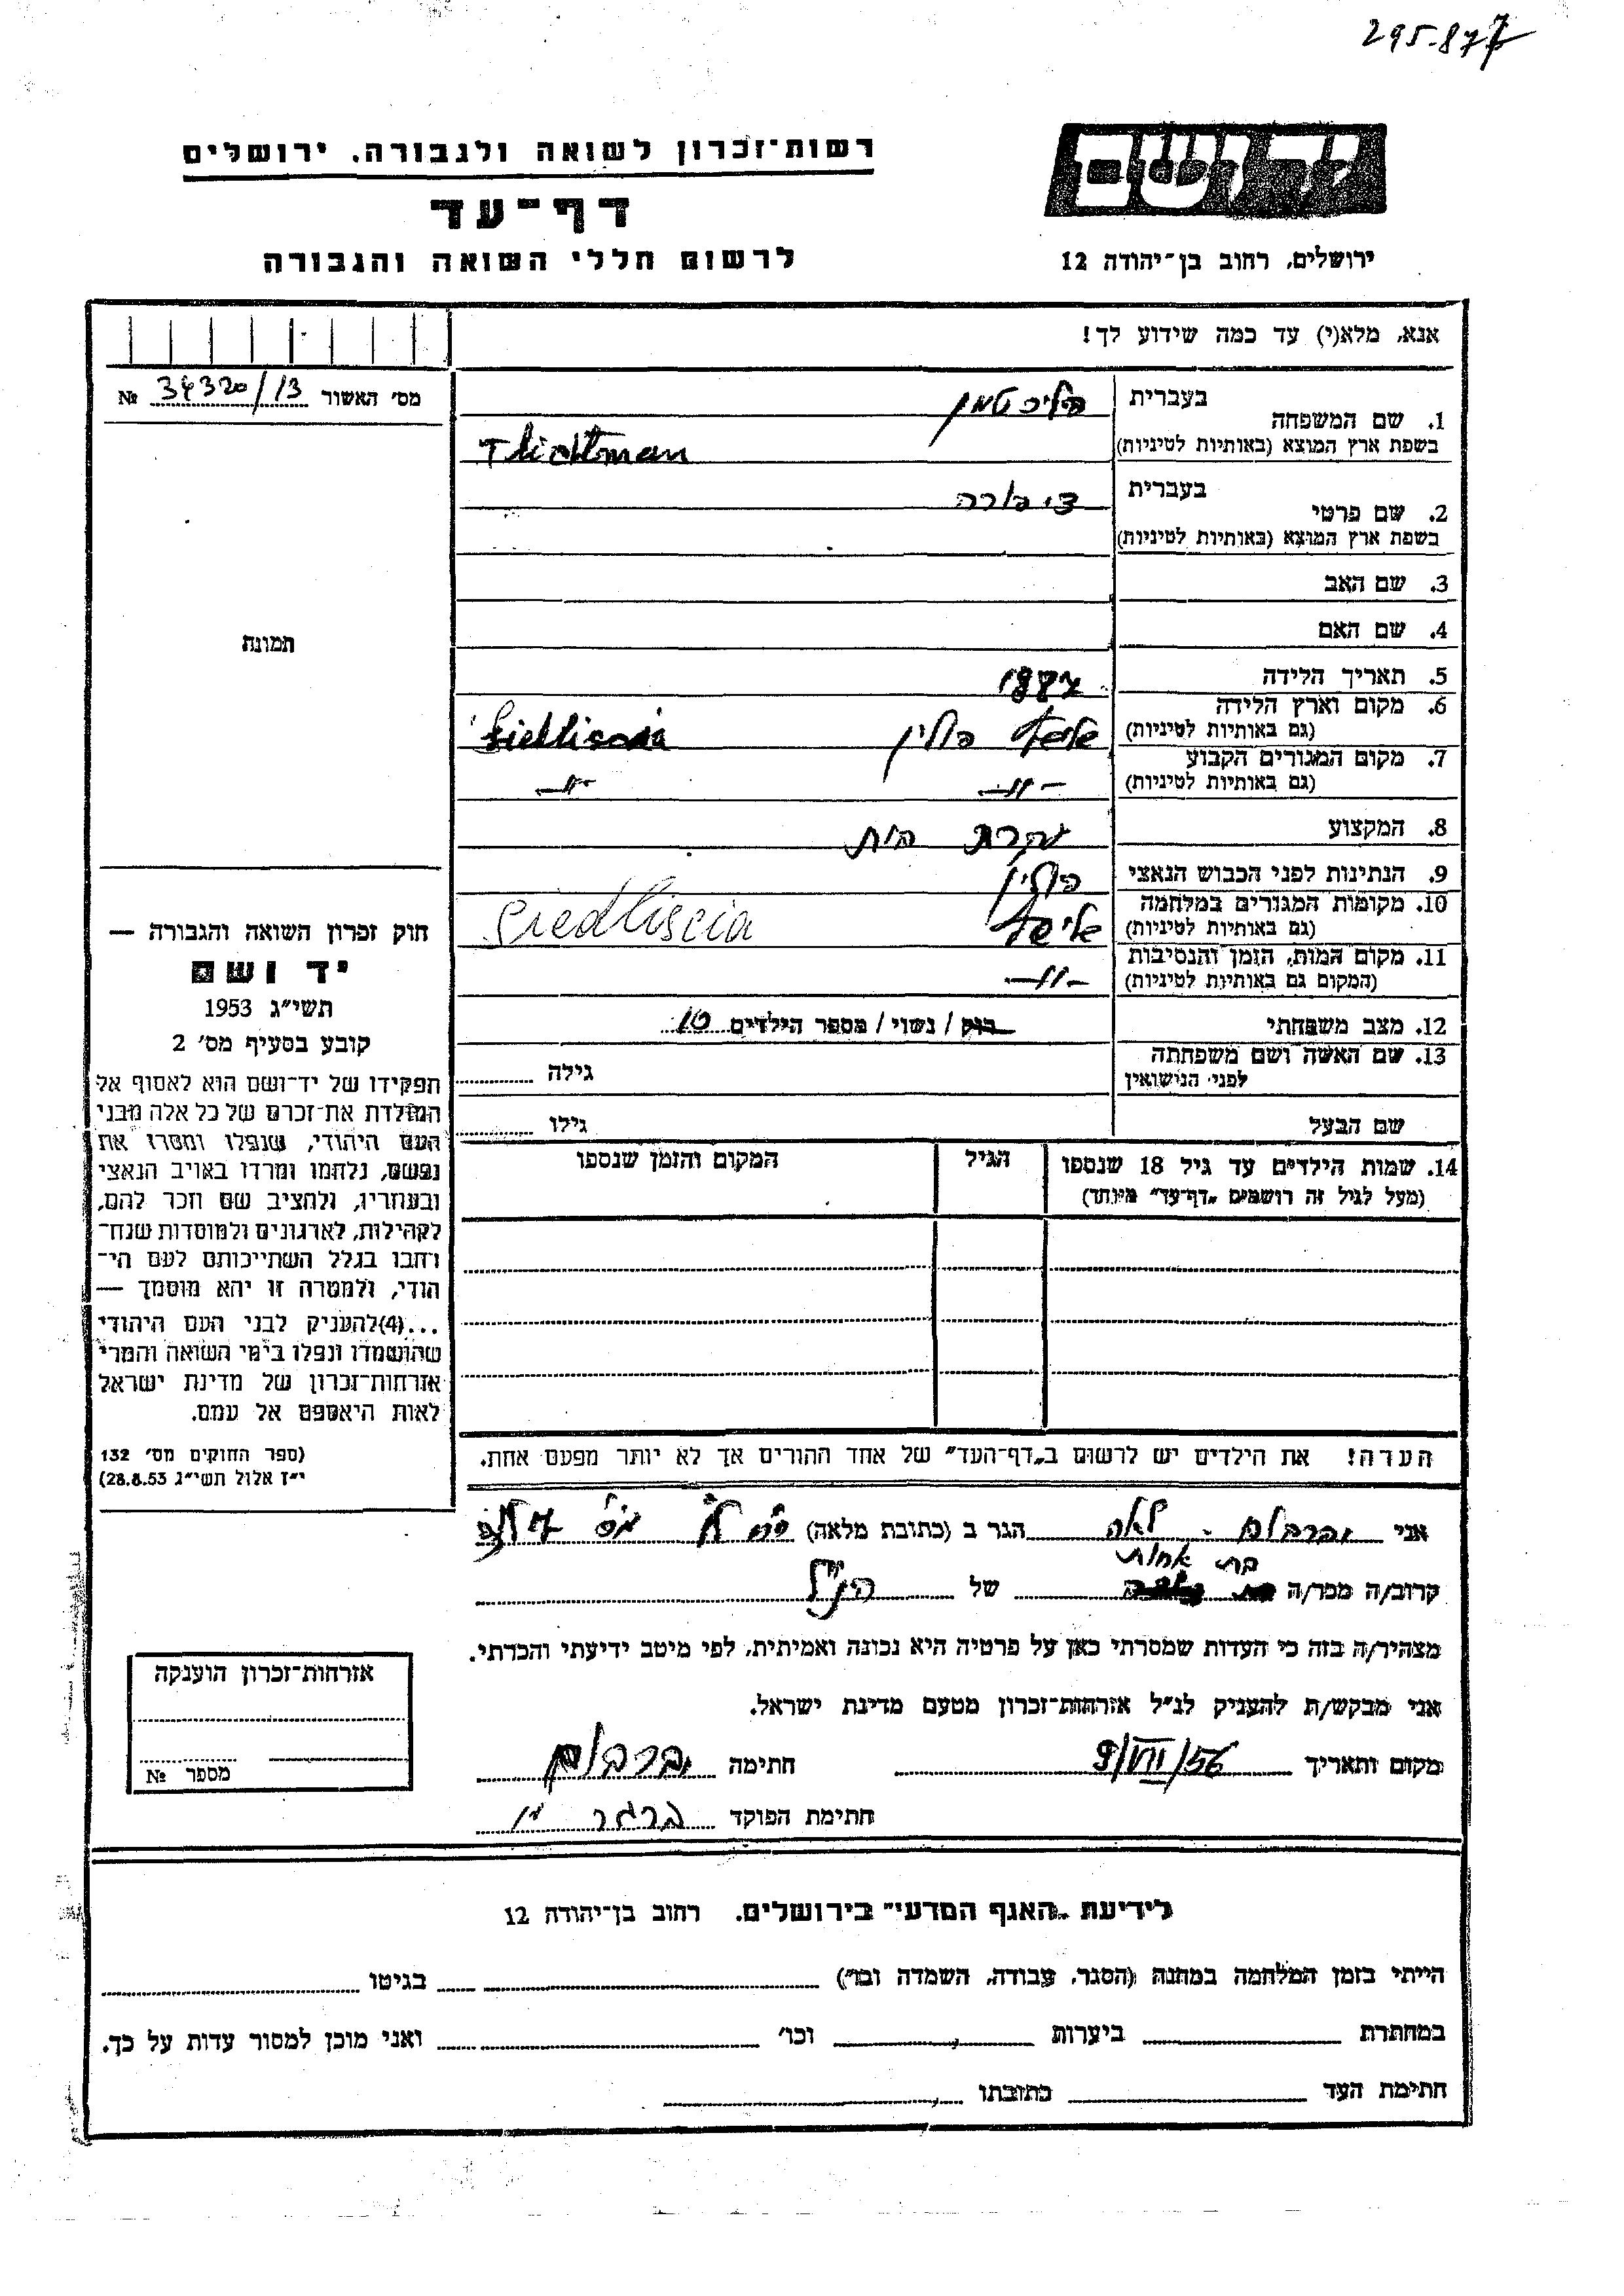 295.877
רשות־זכרון לשואה ולגבורה. ירושלים
דף־עד
לרשום חללי השואה והגבורה
יד ושם
ירושלים, רחוב בן־יהודה 12
אנא, מלא(י) עד כמה שידוע לך!
מס׳ האשור 34320/13 №
תמונה
1. שם המשפחה
בעברית פליכטמן
בשפת ארץ המוצא (באותיות לטיניות) Flichtman
2. שם פרטי
בעברית ציפורה
בשפת ארץ המוצא (באותיות לטיניות)
3. שם האב
4. שם האם
5. תאריך הלידה 1887
6. מקום וארץ הלידה
(גם באותיות לטיניות) פולין
7. מקום המגורים הקבוע
(גם באותיות לטיניות) -״- -״-
8. המקצוע עקרת בית
9. הנתינות לפני הכבוש הנאצי פולין
10. מקומות המגורים במלחמה
(גם באותיות לטיניות)
11. מקום המות, הזמן והנסיבות
(המקום גם באותיות לטיניות) -״-
12. מצב משפחתי רוק / נשוי / מספר הילדים 10
13. שם האשה ושם משפחתה
לפני הנישואין
גילה
שם הבעל
גילו
14. שמות הילדים עד גיל 18 שנספו
(מעל לגיל זה רושמים „דף־עד״ מיוחד)
הגיל
המקום והזמן שנספו
הערה! את הילדים יש לרשום ב„דף־העד״ של אחד ההורים אך לא יותר מפעם אחת.
חוק זכרון השואה והגבורה —
יד ושם
תשי״ג 1953
קובע בסעיף מס׳ 2
תפקידו של יד־ושם הוא לאסוף אל
המולדת את־זכרם של כל אלה מבני
העם היהודי, שנפלו ומסרו את
נפשם, נלחמו ומרדו באויב הנאצי
ובעוזריו, ולהציב שם וזכר להם,
לקהילות, לארגונים ולמוסדות שנח־
רבו בגלל השתייכותם לעם הי־
הודי, ולמטרה זו יהא מוסמך —
...(4)להעניק לבני העם היהודי
שהושמדו ונפלו בימי השואה והמרי
אזרחות־זכרון של מדינת ישראל
לאות היאספם אל עמם.
(ספר החוקים מס׳ 132
י״ז אלול תשי״ג 28.8.53)
אני לאה הגר ב (כתובת מלאה)
בת אחות
קרוב/ה מכר/ה של הנ״ל
מצהיר/ה בזה כי העדות שמסרתי כאן על פרטיה היא נכונה ואמיתית, לפי מיטב ידיעתי והכרתי.
אני מבקש/ת להעניק לנ״ל אזרחות־זכרון מטעם מדינת ישראל.
מקום ותאריך 9/VII/56 חתימה
חתימת הפוקד ברגר
אזרחות־זכרון הוענקה
מספר №
לידיעת „האגף המדעי״ בירושלים. רחוב בן־יהודה 12
הייתי בזמן המלחמה במחנה (הסגר, עבודה, השמדה וכו׳) בגיטו
במחתרת ביערות וכו׳ ואני מוכן למסור עדות על כך.
חתימת העד כתובתו